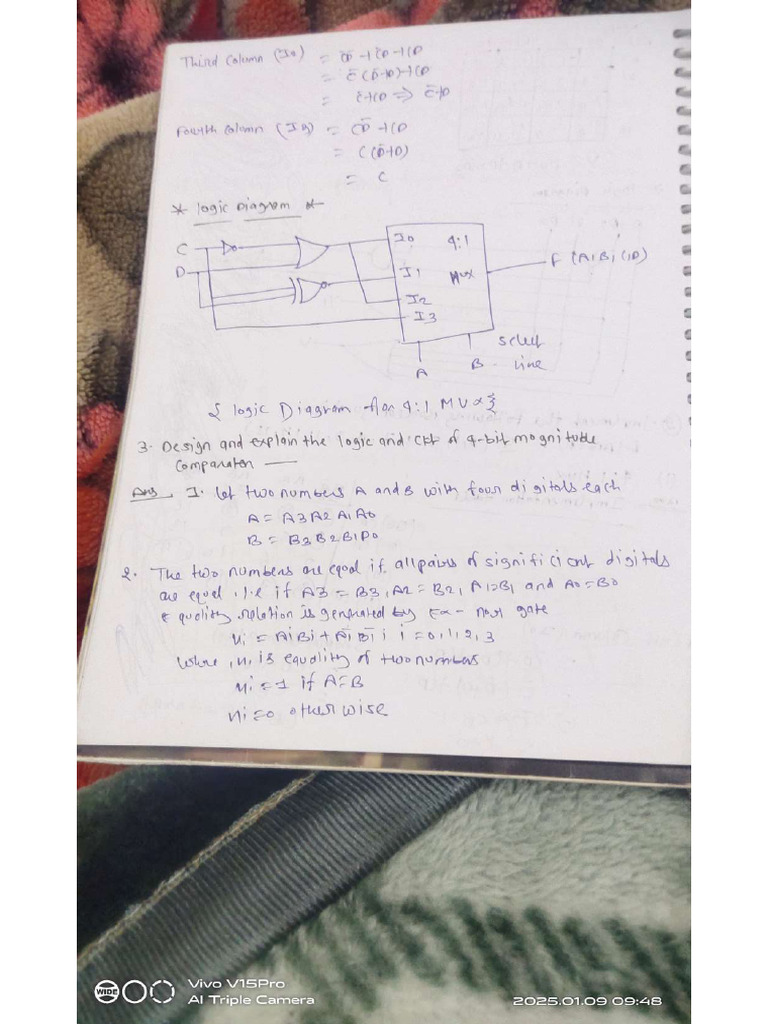 Third Column (I2) = C̄D̄ + C̄D + CD
= C̄(D̄+D)+CD
= C̄+CD ⇒ C̄+D
Fourth Column (I3) = CD̄ + CD
= C(D̄+D)
= C
* Logic Diagram *
C
D
I0
4:1
I1
MUX
I2
I3
F(A,B,C,D)
A
B
Select
Line
{ Logic Diagram for 4:1 MUX }
3. Design and explain the logic and CKT of 4-bit magnitude
comparator —
Ans 1. let two numbers A and B with four digitals each
A = A3A2A1A0
B = B3B2B1B0
2. The two numbers are equal if all pairs of significient digitals
are equal i.e if A3 = B3, A2 = B2, A1=B1 and A0=B0
equality relation is generated by Ex-nor gate
xi = AiBi + ĀiB̄i i = 0,1,2,3
where, xi is equality of two numbers
xi = 1 if A=B
xi = 0 otherwise
Vivo V15Pro
AI Triple Camera
WIDE
2025.01.09 09:48